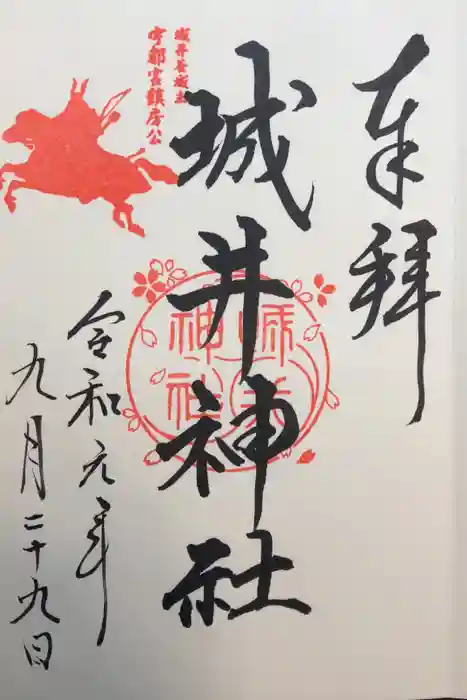 奉拝
城井神社
城井谷城主
宇都宮鎮房公
令和元年
九月二十九日